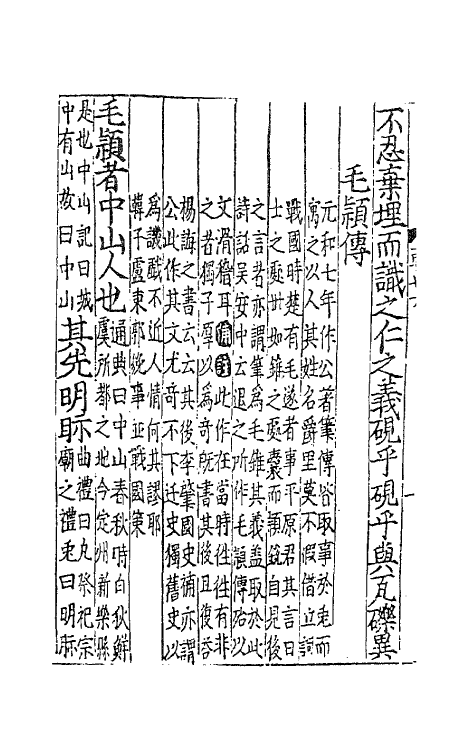 不忍棄埋而識之仁之義硯乎硯乎與瓦礫異
毛頴傳
元和七年作公著筆傳皆取事於兎而
寓之以人其姓名爵里莫不假借立詞
戰國時楚有毛遂者事平原君其言曰
士之處世如錐之處囊而頴銳自見後
之言者亦謂筆為毛錐其義盖取於此
詩話吴安中云退之所作毛頴傳殆以
文滑稽耳補註此作在當時徃徃有非
之者獨子厚以為竒既書其後且復荅
楊誨之書云云其後李肇國史補亦謂
公此作其文尤竒不下迁史獨舊史以
為譏戱不近人情何其謬耶
韓子盧東郭㕙事並戰國䇿
毛頴者中山人也
通典曰中山春秋時白狄鮮
虞所都之地今定州新樂縣
是也中山記曰城
中有山故曰中山
其先明眎
曲禮曰凡祭祀宗
廟之禮兎曰明眎